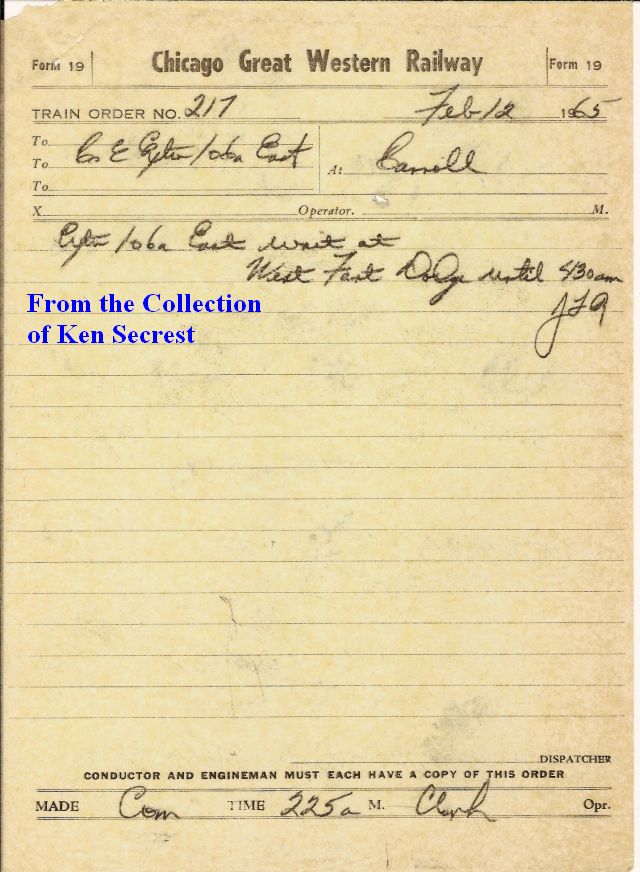 Form 19 Chicago Great Western Railway Form 19
TRAIN ORDER NO. 217 Feb 12 1965
To
To C&E Extra 106a East At Carroll
To
X Operator. M.
Extra 106a East wait at
West Fort Dodge until 430am
From the Collection
of Ken Secrest
DISPATCHER
CONDUCTOR AND ENGINEMAN MUST EACH HAVE A COPY OF THIS ORDER
MADE Com TIME 225a M. Clark Opr.